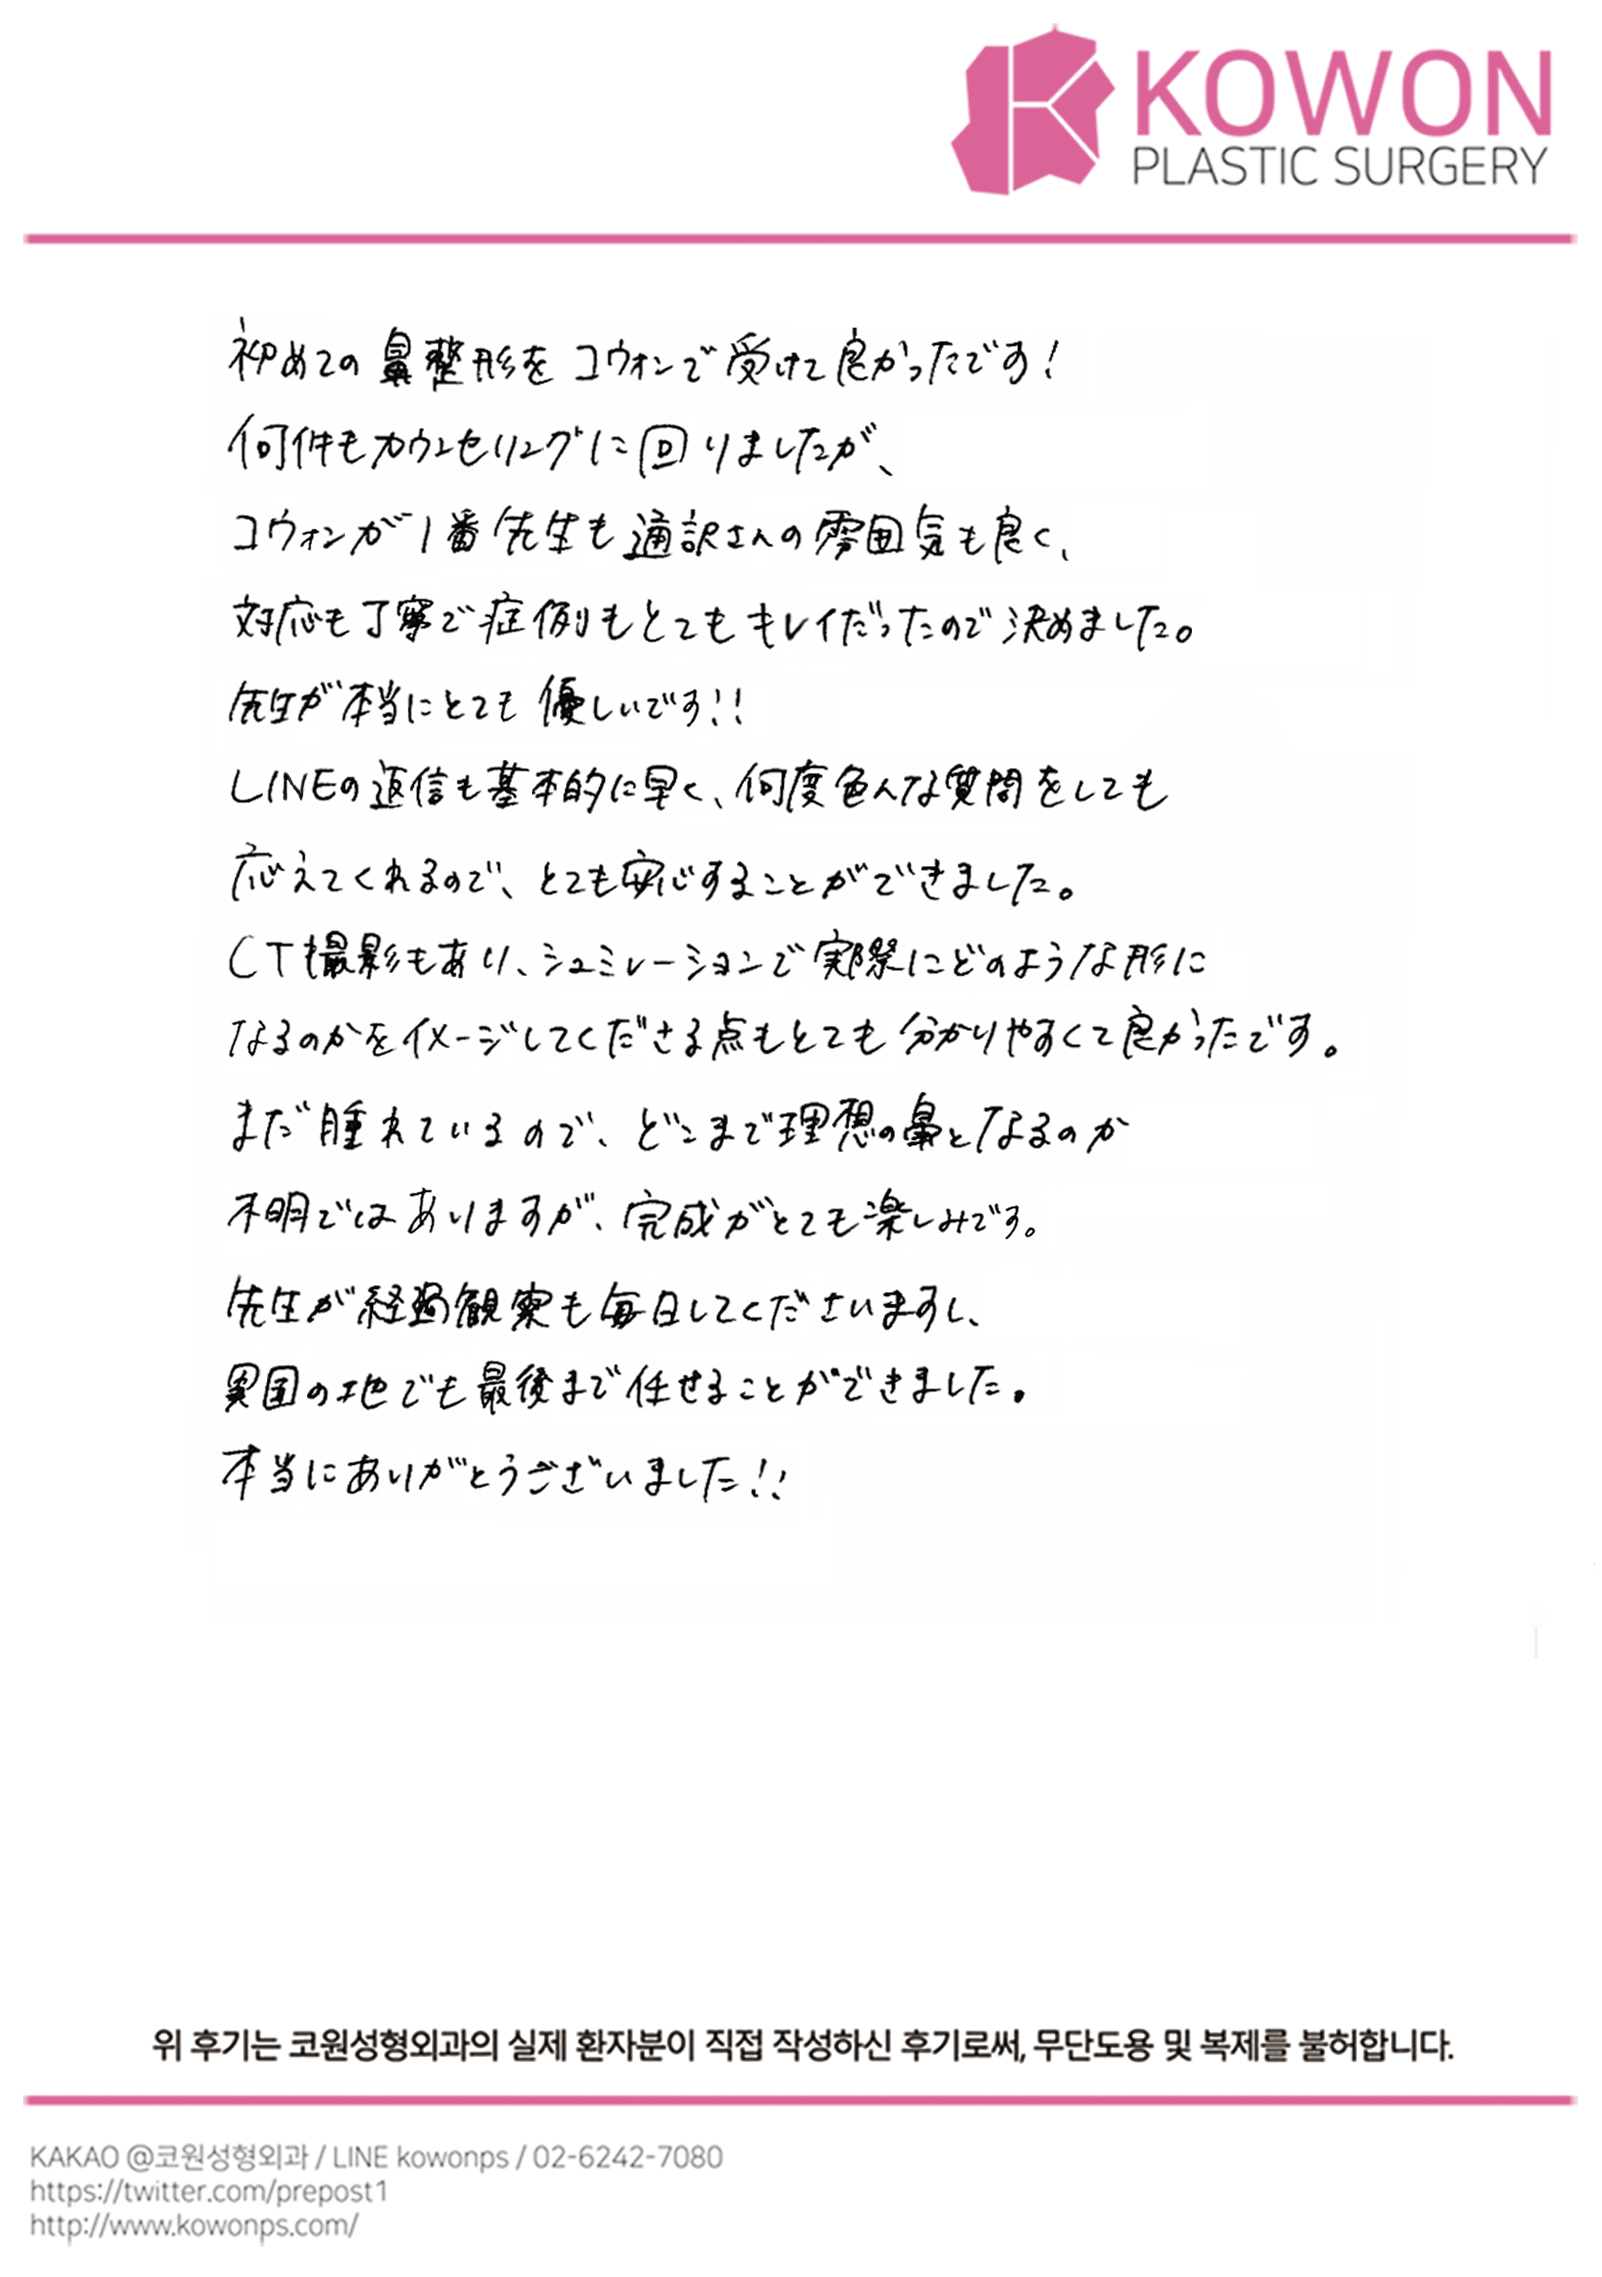 KOWON
PLASTIC SURGERY
初めての鼻整形をコウォンで受けて良かったです!
何件もカウンセリングに回りましたが、
コウォンが1番先生も通訳さんの雰囲気も良く、
対応も丁寧で症例もとてもキレイだったので決めました。
先生が本当にとても優しいです!!
LINEの返信も基本的に早く、何度色んな質問をしても
応えてくれるので、とても安心することができました。
CT撮影もあり、シュミレーションで実際にどのような形に
なるのかをイメージしてくださる点もとても分かりやすくて良かったです。
まだ腫れているので、どこまで理想の鼻となるのか
不明ではありますが、完成がとても楽しみです。
先生が経過観察も毎日してくださいますし、
異国の地でも最後まで任せることができました。
本当にありがとうございました!!
위 후기는 코원성형외과의 실제 환자분이 직접 작성하신 후기로써, 무단도용 및 복제를 불허합니다.
KAKAO @코원성형외과 / LINE kowonps / 02-6242-7080
https://twitter.com/prepost1
http://www.kowonps.com/